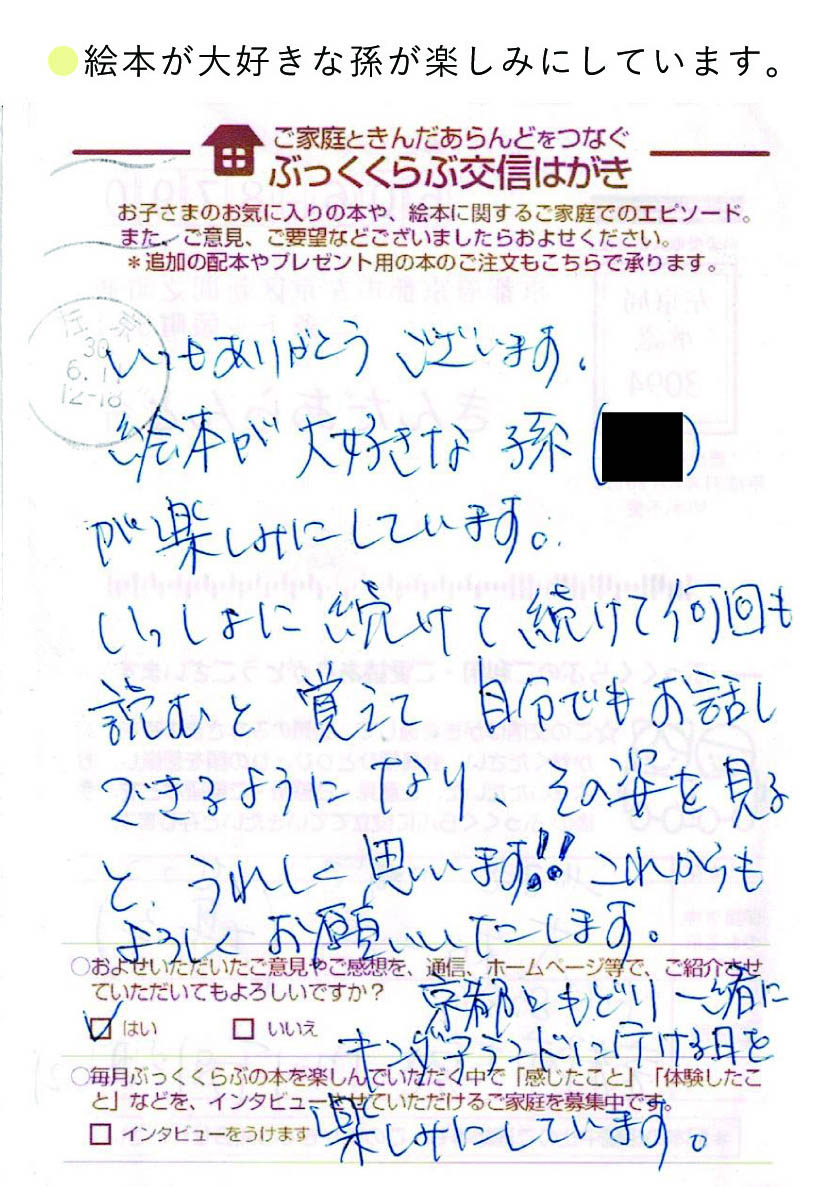 絵本が大好きな孫が楽しみにしています。
ご家庭ときんだあらんどをつなぐ
ぶっくくらぶ交信はがき
お子さまのお気に入りの本や、絵本に関するご家庭でのエピソード。
また、ご意見、ご要望などございましたらおよせください。
＊追加の配本やプレゼント用の本のご注文もこちらで承ります。
左京
30
6.11
12-18
いつもありがとう ございます。
絵本が 大好きな 孫( )
が楽しみにしています。
いっしょに 続けて 続けて何回も
読むと 覚えて 自分でもお話し
できるようになり、その姿を見る
と うれしく思います!! これからも
よろしくお願いいたします。
○およせいただいたご意見やご感想を、通信、ホームページ等で、ご紹介させ
ていただいてもよろしいですか？
✓□はい □いいえ
京都にもどり 一緒に
キンダアランドに行ける日を
○毎月ぶっくくらぶの本を楽しんでいただく中で「感じたこと」「体験したこ
と」などを、インタビューさせていただけるご家庭を募集中です。
□ インタビューをうけます
楽しみにしています。